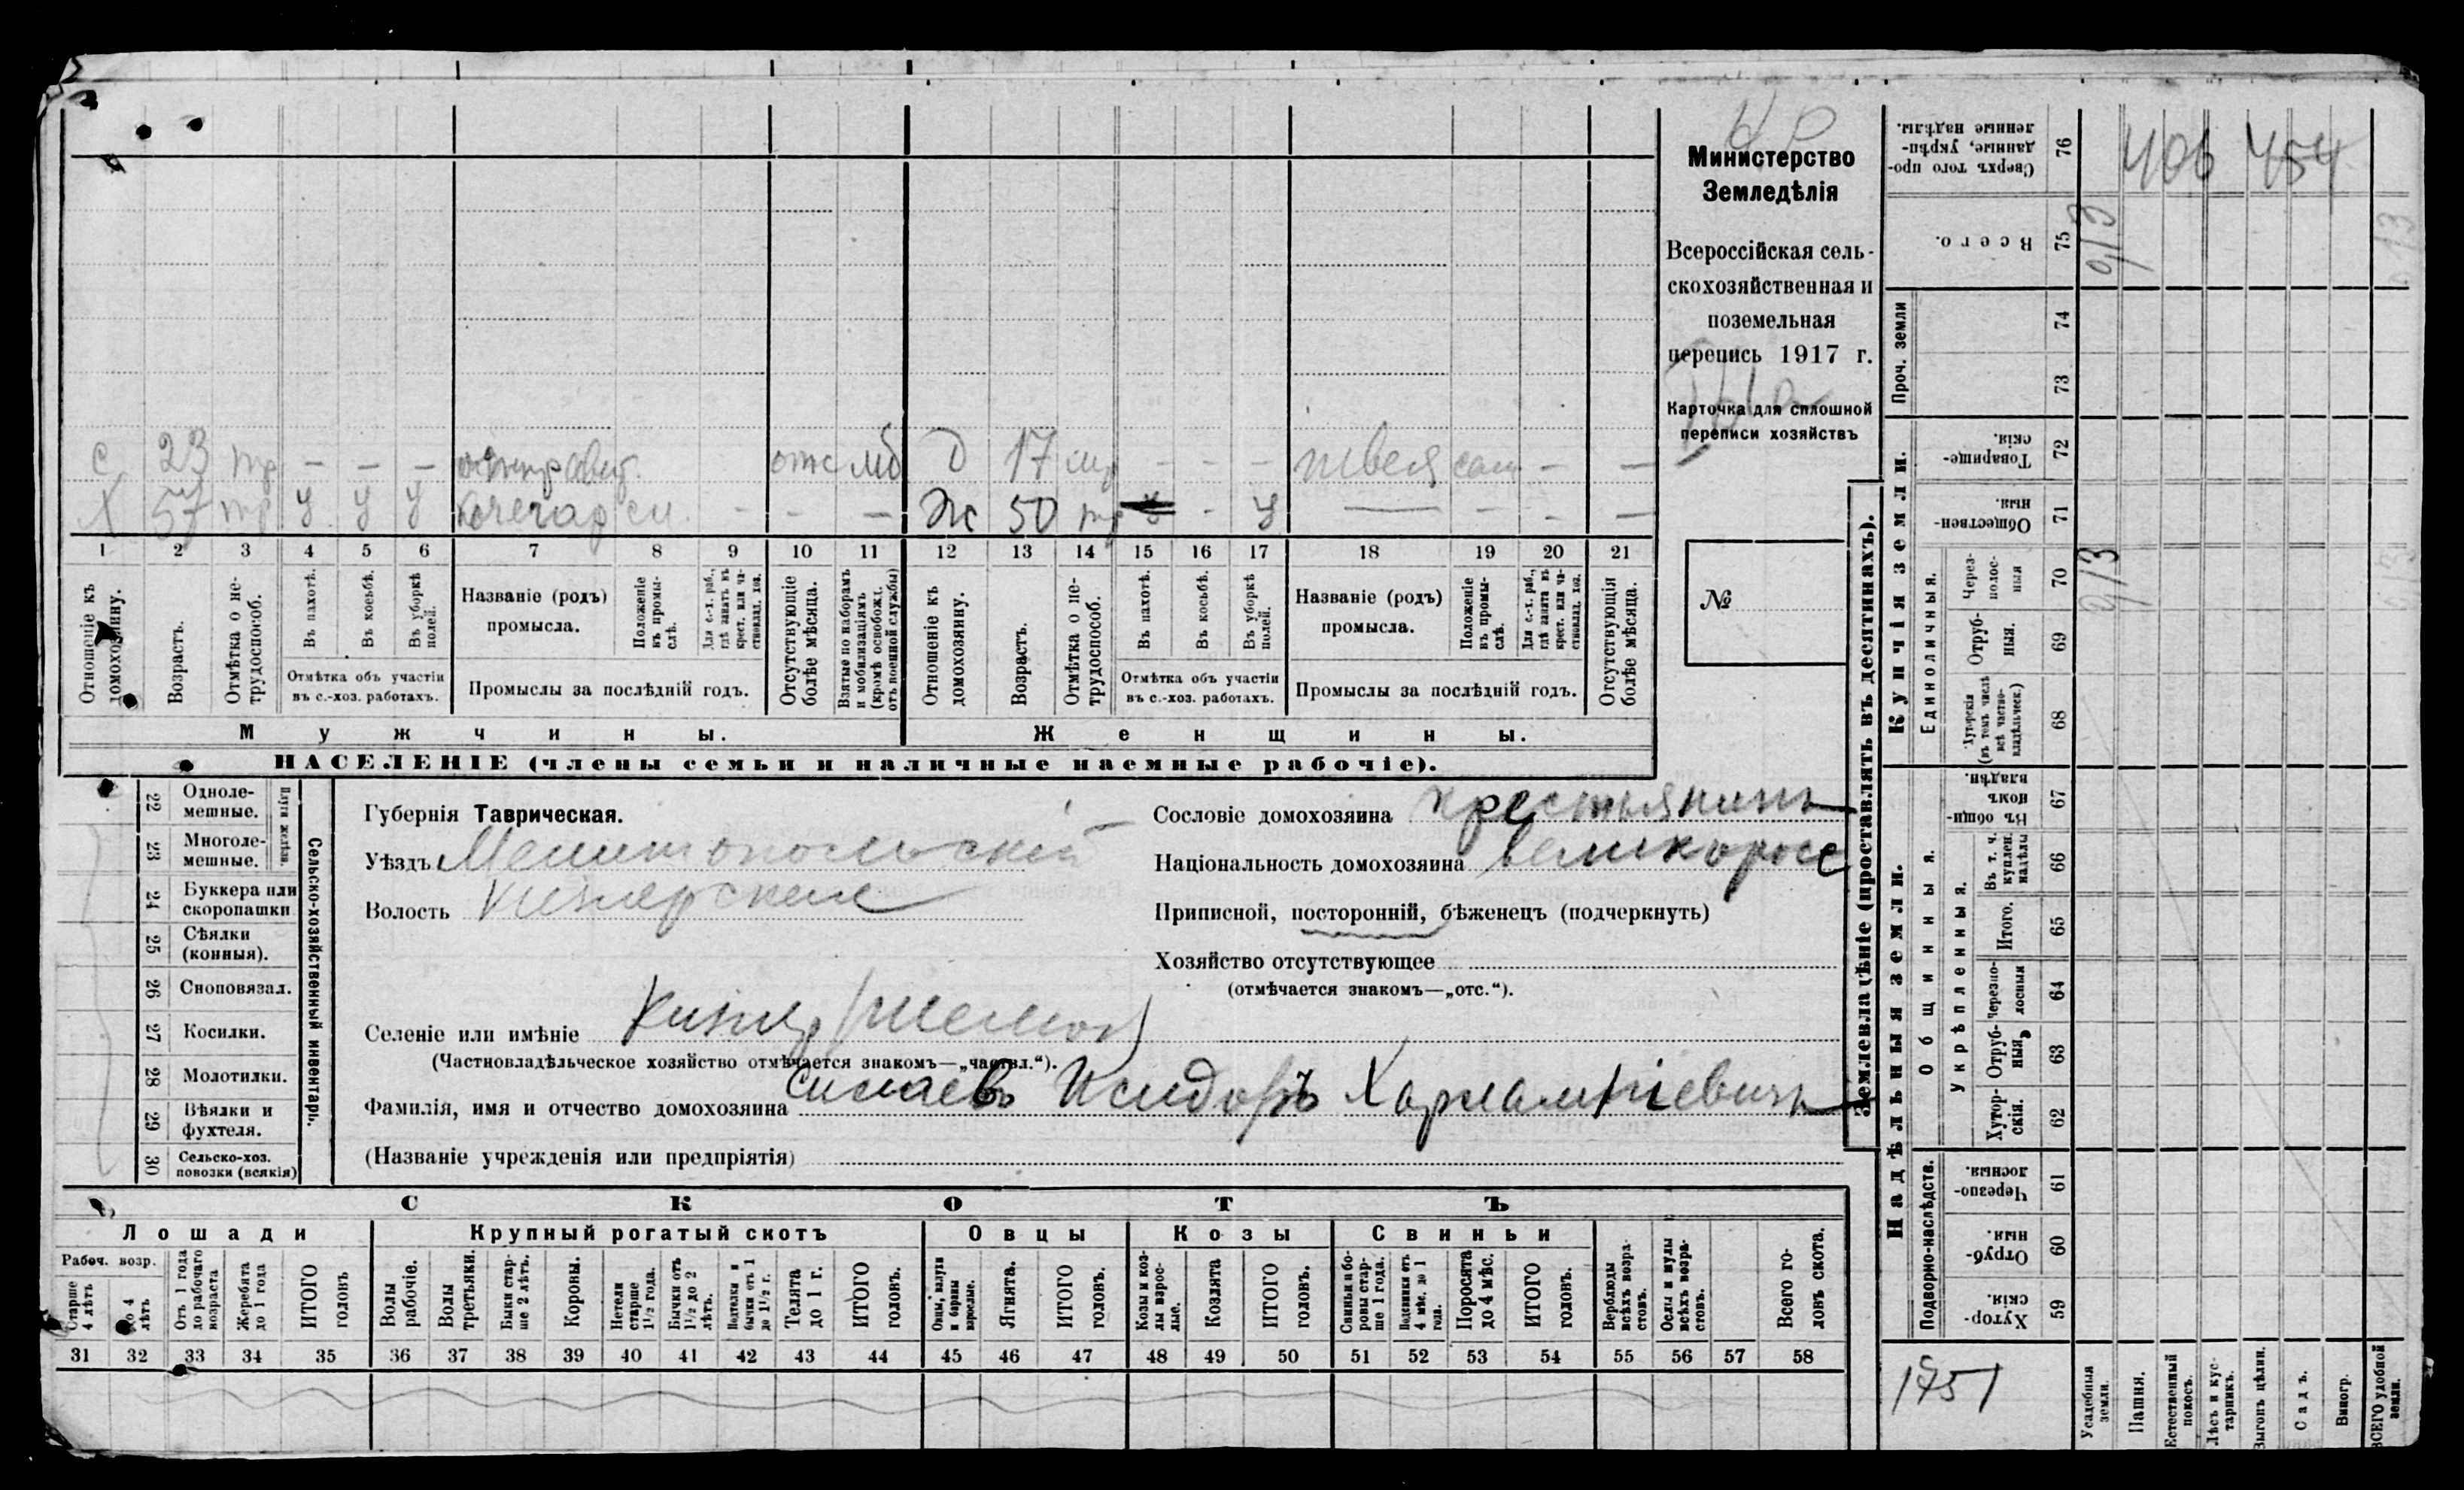 Министерство
Земледѣлія
Всероссійская сель-
скохозяйственная и
поземельная
перепись 1917 г.
Карточка для сплошной
переписи хозяйствъ
№
с 23 тр – – – отс мб д 17 – – – швея сам – –
х 57 тр у у у кочегар сл. – – – Ж 50 тр – у — – – –
1 2 3 4 5 6 7 8 9 10 11 12 13 14 15 16 17 18 19 20 21
Отношеніе къ домохозяину.
Возрастъ.
Отмѣтка о не-трудоспособ.
Въ пахотѣ.
Въ косьбѣ.
Въ уборкѣ полей.
Отмѣтка объ участіи
въ с.-хоз. работахъ.
Названіе (родъ)
промысла.
Положеніе въ промы-слѣ.
Для с.-х. раб., гдѣ занятъ въ крест. или ча-ствовлад. хоз.
Промыслы за послѣдній годъ.
Отсутствующіе болѣе мѣсяца.
Взятые по наборамъ и мобилизаціямъ (кромѣ освобожд. отъ военной службы)
Отношеніе къ домохозяину.
Возрастъ.
Отмѣтка о не-трудоспособ.
Въ пахотѣ.
Въ косьбѣ.
Въ уборкѣ полей.
Отмѣтка объ участіи
въ с.-хоз. работахъ.
Названіе (родъ)
промысла.
Положеніе въ промы-слѣ.
Для с.-х. раб., гдѣ занята въ крест. или ча-ствовлад. хоз.
Промыслы за послѣдній годъ.
Отсутствующія болѣе мѣсяца.
Мужчины.
Женщины.
НАСЕЛЕНІЕ (члены семьи и наличные наемные рабочіе).
Сельско-хозяйственный инвентарь.
Плуги желѣзн.
22 Одноле-мешные.
23 Многоле-мешные.
24 Буккера или скоропашки
25 Сѣялки (конныя).
26 Сноповязал.
27 Косилки.
28 Молотилки.
29 Вѣялки и фухтеля.
30 Сельско-хоз. повозки (всякія)
Губернія Таврическая.
Уѣздъ Мелитопольскій
Волость Кизиярская
Селеніе или имѣніе Кизияр
(Частновладѣльческое хозяйство отмѣчается знакомъ—„частвл.“).
Фамилія, имя и отчество домохозяина Силаевъ Исидоръ Харлампіевичъ
(Названіе учрежденія или предпріятія)
Сословіе домохозяина крестьянинъ
Національность домохозяина великоросс
Приписной, посторонній, бѣженецъ (подчеркнуть)
Хозяйство отсутствующее
(отмѣчается знакомъ—„отс.“).
СКОТЪ
Лошади
Рабоч. возр.
Старше 4 лѣтъ
До 4 лѣтъ
Отъ 1 года до рабочаго возраста
Жеребята до 1 года
ИТОГО головъ
Крупный рогатый скотъ
Волы рабочіе.
Волы третьяки.
Быки стар-ше 2 лѣтъ.
Коровы.
Нетели старше 1½ года.
Бычки отъ 1½ до 2 лѣтъ.
Подтелки и бычки отъ 1 до 1½ г.
Телята до 1 г.
ИТОГО головъ.
Овцы
Овцы, валухи и бараны взрослые.
Ягнята.
ИТОГО головъ.
Козы
Козы и коз-лы взрос-лые.
Козлята
ИТОГО головъ.
Свиньи
Свиньи и бо-ровы стар-ше 1 года.
Подсвинки отъ 4 мѣс. до 1 года.
Поросята до 4 мѣс.
ИТОГО головъ.
Верблюды всѣхъ возра-стовъ.
Ослы и мулы всѣхъ возра-стовъ.
Всего го-ловъ скота.
31 32 33 34 35 36 37 38 39 40 41 42 43 44 45 46 47 48 49 50 51 52 53 54 55 56 57 58
Землевладѣніе (проставлять въ десятинахъ).
Купчія земли.
Сверхъ того про-данные, укрѣп-ленные надѣлы. 76 406 454
Всего. 75 2/3
Проч. земли
74
73
Товарище-скія. 72
Обществен-ныя. 71
Единоличныя.
Через-полос-ныя 70 2/3
Отруб-ныя. 69
Хуторскія (въ томъ числѣ всѣ частно-владѣльческ.) 68
Надѣльныя земли.
Общинныя.
Въ общи-номъ владѣн. 67
Укрѣпленныя.
Въ т. ч. куплен. надѣлы 66
Итого. 65
Черезпо-лосныя 64
Отруб-ныя 63
Хутор-скія. 62
Подворно-наслѣдств.
Черезпо-лосныя. 61
Отруб-ныя 60
Хутор-скія. 59
1751
Усадебныя земли.
Пашня.
Естественный покосъ.
Лѣсъ и кус-тарникъ.
Выгонъ цѣлин.
Садъ.
Виногр.
ВСЕГО удобной земли.